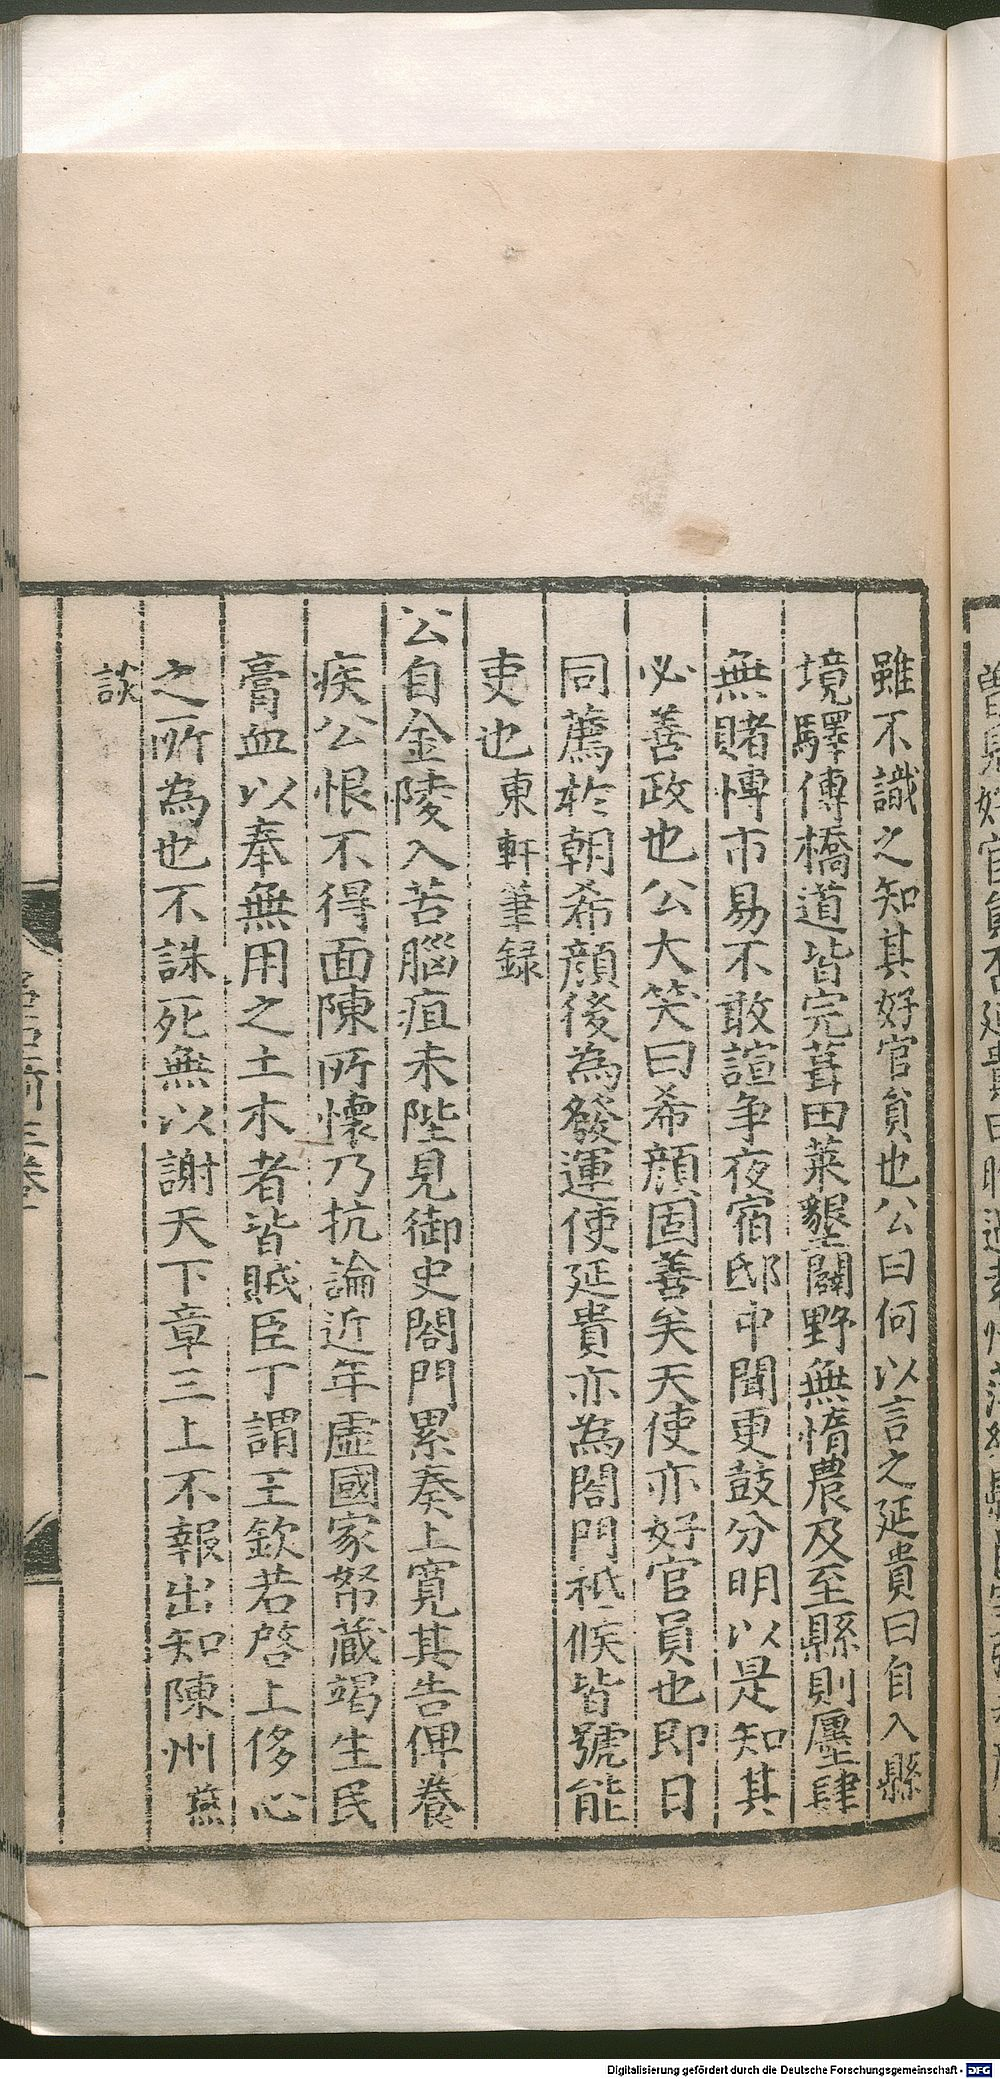 雖不識之知其好官員也公曰何以言之延貴曰自入縣
境驛傳橋道皆完葺田萊墾闢野無惰農及至縣則廛肆
無賭博市易不敢諠争夜宿邸中聞更鼓分明以是知其
必善政也公大笑曰希顔固善矣天使亦好官員也即日
同薦於朝希顔後為發運使延貴亦為閤門祗候皆號能
吏也東軒筆録
公自金陵入苦腦疽未陛見御史閤門累奏上寛其告俾養
疾公恨不得面陳所懷乃抗論近年虚國家帑蔵竭生民
膏血以奉無用之土木者皆賊臣丁謂王欽若啓上侈心
之所為也不誅死無以謝天下章三上不報出知陳州燕
談
Digitalisierung gefördert durch die Deutsche Forschungsgemeinschaft - DFG